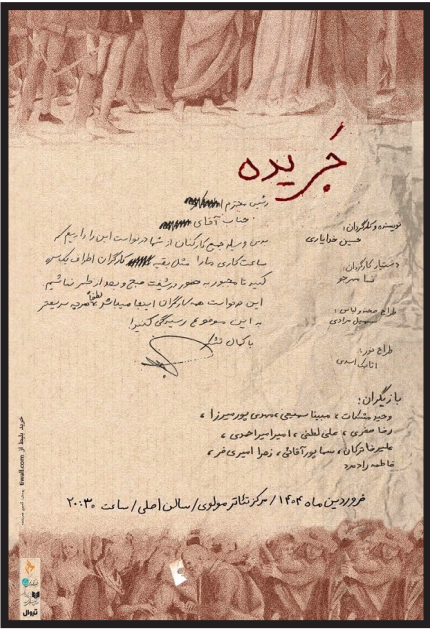 جَریده
رئیس محترم
جناب آقای
بدین وسیله جمیع کارکنان از شما درخواست این را داریم که
ساعت کاری ما را مثل بقیه کارگران اطراف یکسان
کنید تا مجبور به حضور در شیفت صبح و بعد از ظهر نباشیم
این درخواست همه کارگران اینجا میباشد لطفاً هرچه سریعتر
به این موضوع رسیدگی کنید
با کمال تشکر
نویسنده و کارگردان:
حسین خدایاری
دستیار کارگردان:
طراح صحنه و لباس:
سهیل مرادی
طراح نور:
اتابک اسدی
بازیگران:
وحید مشکات ، مبینا سمیعی ، مهدی پورمیرزا ،
رضا صفری ، علی لطفی ، امیرامیراحمدی ،
علیرضا ترکان ، سما پورآقائی ، زهرا امیری فر ،
فاطمه رادمرد
فروردین ماه ۱۴۰۴ / مرکز تئاتر مولوی / سالن اصلی / ساعت ۲۰:۳۰
خرید بلیط از tiwall.com
تیوال